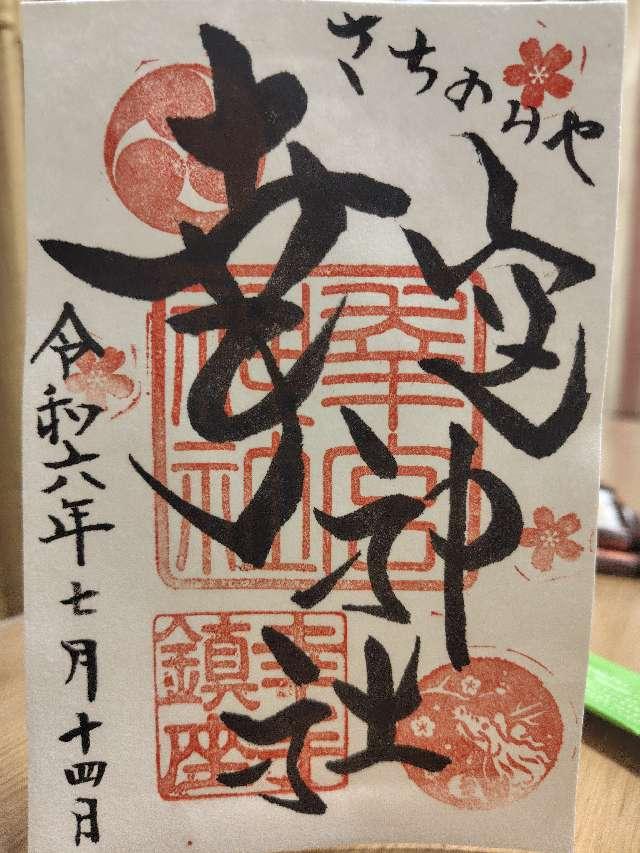 さちのみや
幸宮神社
幸宮
神社
幸手
鎮座
令和六年七月十四日